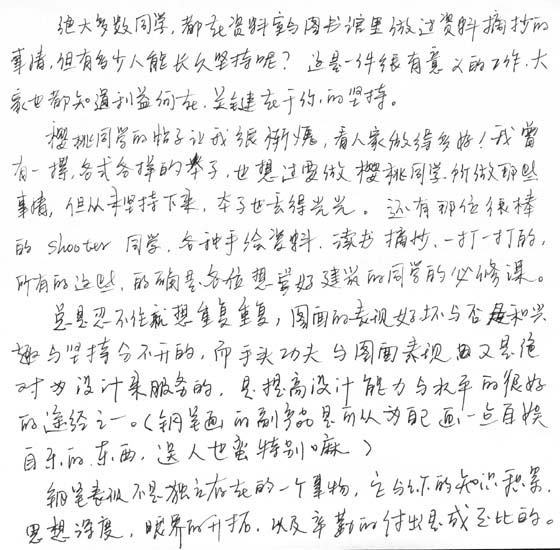 绝大多数同学,都在资料室与图书馆里做过资料摘抄的
事情,但有多少人能长久坚持呢?这是一件很有意义的工作.大
家也都知道利益何在.关键在于你.的坚持。
樱桃同学的帖子让我很惭愧,看人家做得多好!我曾
有一摞,各式各样的本子,也想过要做樱桃同学.所做那些
事情,但从未坚持下来,本子也丢得光光。还有那位很棒
的shooter同学.各种手绘资料.读书摘抄.一打一打的,
所有的这些,的确是各位想学好建筑的同学的必修课。
总是忍不住就想重复重复,图面的表现好坏与否是和兴
趣与坚持分不开的,而手头功夫与图面表现又是绝
对为设计来服务的,是提高设计能力与水平的很好
的途径之一。(钢笔画的副产品是可以为自己画一点自娱
自乐的.东西,送人也蛮特别嘛)
钢笔表现不是独立存在的一个事物,它与你的知识积累.
思想深度,眼界的开拓.以及辛勤的付出是成正比的。